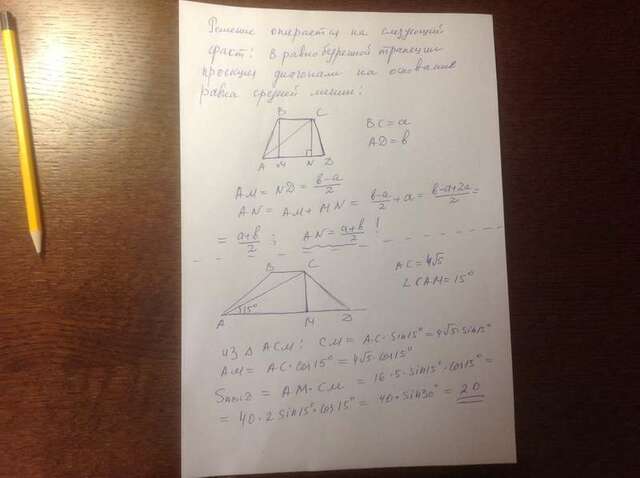 Решение опирается на следующий
факт: в равнобедренной трапеции
проекция диагонали на основание
равна средней линии:
B C
A M N D
BC = a
AD = b
AM = ND = b-a/2
AN = AM + MN = b-a/2 + a = b-a+2a/2 =
= a+b/2 ; AN = a+b/2 !
B C
A 15° M D
AC = 4√5
∠CAM = 15°
из Δ ACM: CM = AC·Sin15° = 4√5·sin15°
AM = AC·cos15° = 4√5·cos15°
= AM·CM = 16·5·sin15°·cos15° =
= 40·2Sin15°·cos15° = 40·Sin30° = 20